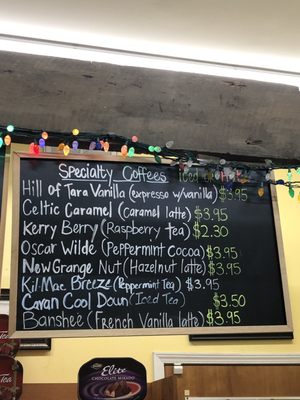 Specialty Coffees Iced
Hill of Tara Vanilla (expresso w/vanilla) $3.95
Celtic Caramel (caramel latte) $3.95
Kerry Berry (Raspberry Tea) $2.30
Oscar Wilde (Peppermint Cocoa) $3.95
New Grange Nut (Hazelnut latte) $3.95
Kil-Mac Breeze (Peppermint Tea) $3.95
Cavan Cool Down (Iced Tea) $3.50
Banshee (French Vanilla latte) $3.95
Elite
CHOCOLATE MIKADO
Tea